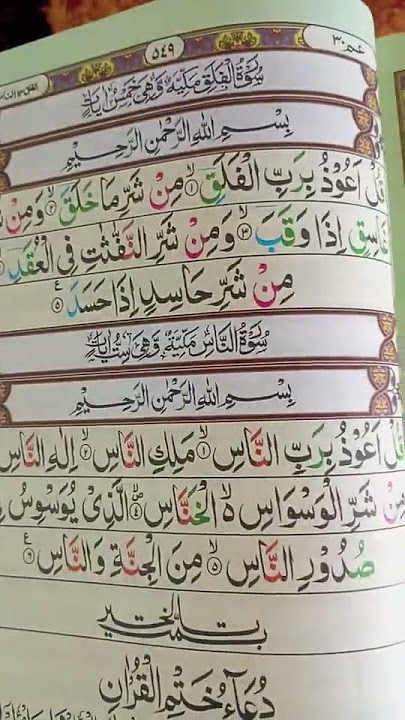 عم ٣٠ ٥٤٩
سُوْرَةُ الْفَلَقِ مَكِّيَّةٌ وَّهِيَ خَمْسُ اٰيَاتٍ
بِسْمِ اللهِ الرَّحْمٰنِ الرَّحِيْمِ
قُلْ اَعُوْذُ بِرَبِّ الْفَلَقِ ۙ﴿۱﴾ مِنْ شَرِّ مَا خَلَقَ ۙ﴿۲﴾ وَمِنْ
غَاسِقٍ اِذَا وَقَبَ ۙ﴿۳﴾ وَمِنْ شَرِّ النَّفّٰثٰتِ فِى الْعُقَدِ
مِنْ شَرِّ حَاسِدٍ اِذَا حَسَدَ ﴿۵﴾ ع
سُوْرَةُ النَّاسِ مَكِّيَّةٌ وَّهِيَ سِتُّ اٰيَاتٍ
بِسْمِ اللهِ الرَّحْمٰنِ الرَّحِيْمِ
قُلْ اَعُوْذُ بِرَبِّ النَّاسِ ۙ﴿۱﴾ مَلِكِ النَّاسِ ۙ﴿۲﴾ اِلٰهِ النَّاسِ
مِنْ شَرِّ الْوَسْوَاسِ ۙ۬ الْخَنَّاسِ ۪ۙ﴿۴﴾ الَّذِىْ يُوَسْوِسُ
صُدُوْرِ النَّاسِ ۙ﴿۵﴾ مِنَ الْجِنَّةِ وَالنَّاسِ ﴿۶﴾ ع
تمت بالخير
دُعَآءُ خَتْمِ الْقُرْاٰنِ